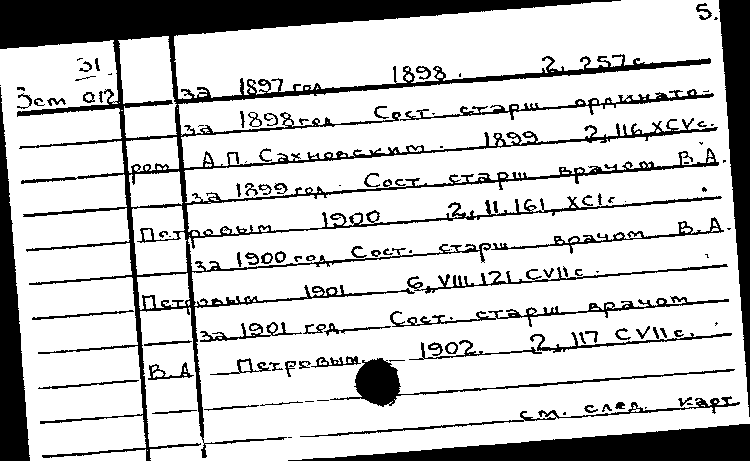 5.
31
Зст 012
за 1897 год 1898. 2, 257 с.
за 1898 год Сост. старш ординато-
ром А.П. Сахновским. 1899 2, 116, XCV с.
за 1899 год. Сост. старш врачом В.А.
Петровым 1900 2, 11, 161, XCI с.
за 1900 год Сост. старш врачом В.А.
Петровым 1901 6, VIII, 121, CVII с.
за 1901 год. Сост. старш врачом
В.А Петровым. 1902. 2, 117 CVII с.
см. след. карт